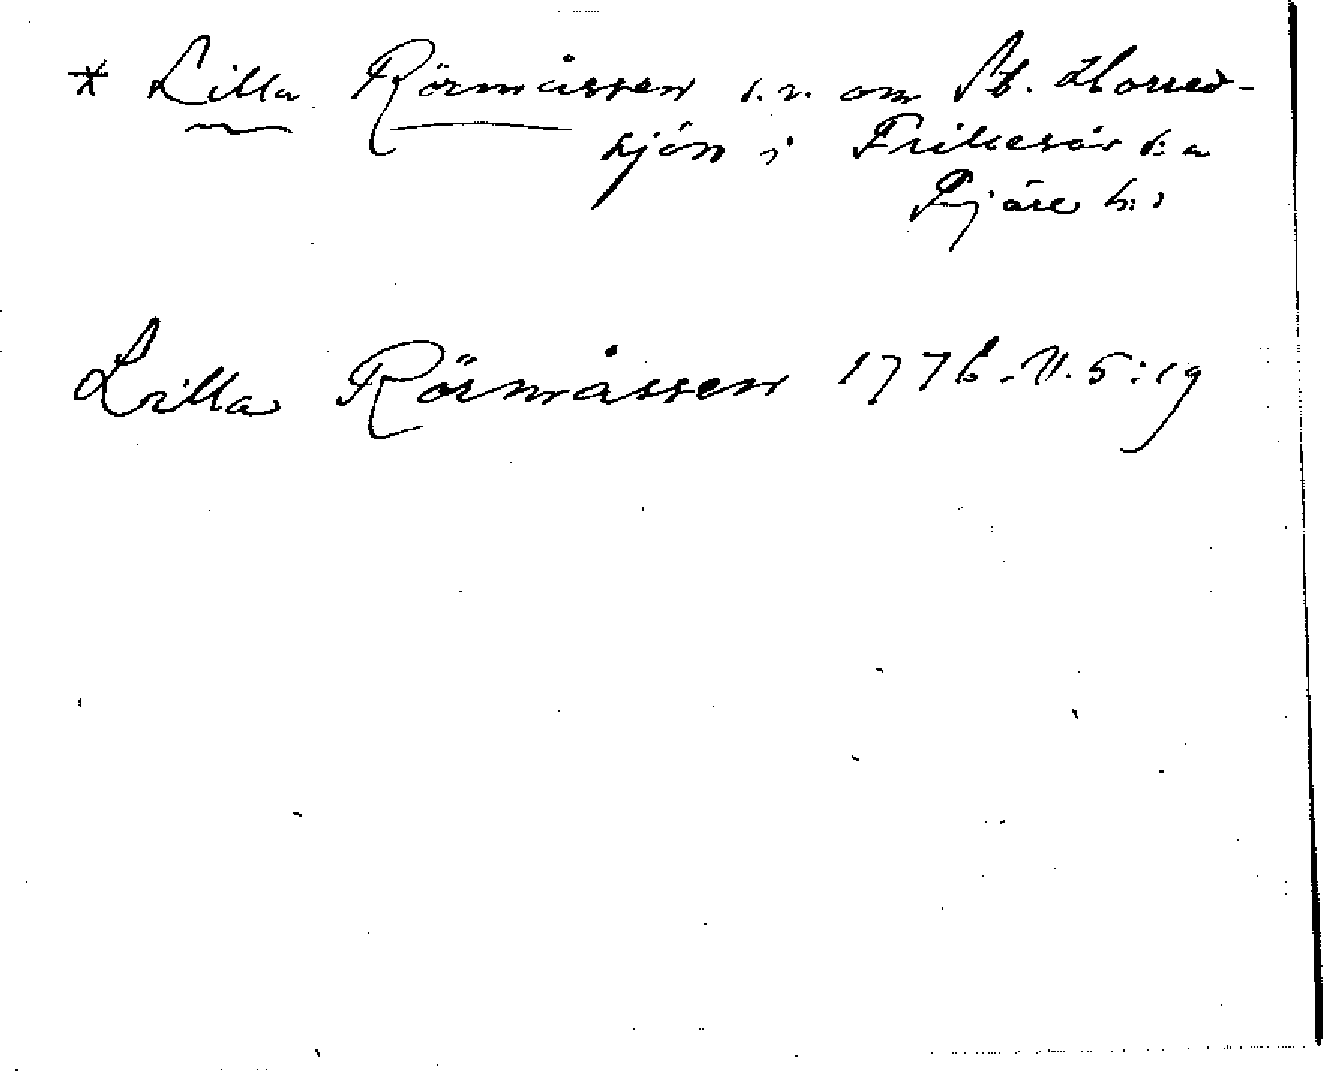 * Lilla Rörmåssen s.v. om St. Horred-
sjön i Frillesås sn
Fjäre hd
Lilla Rörmåssen 1776. V. 5:19